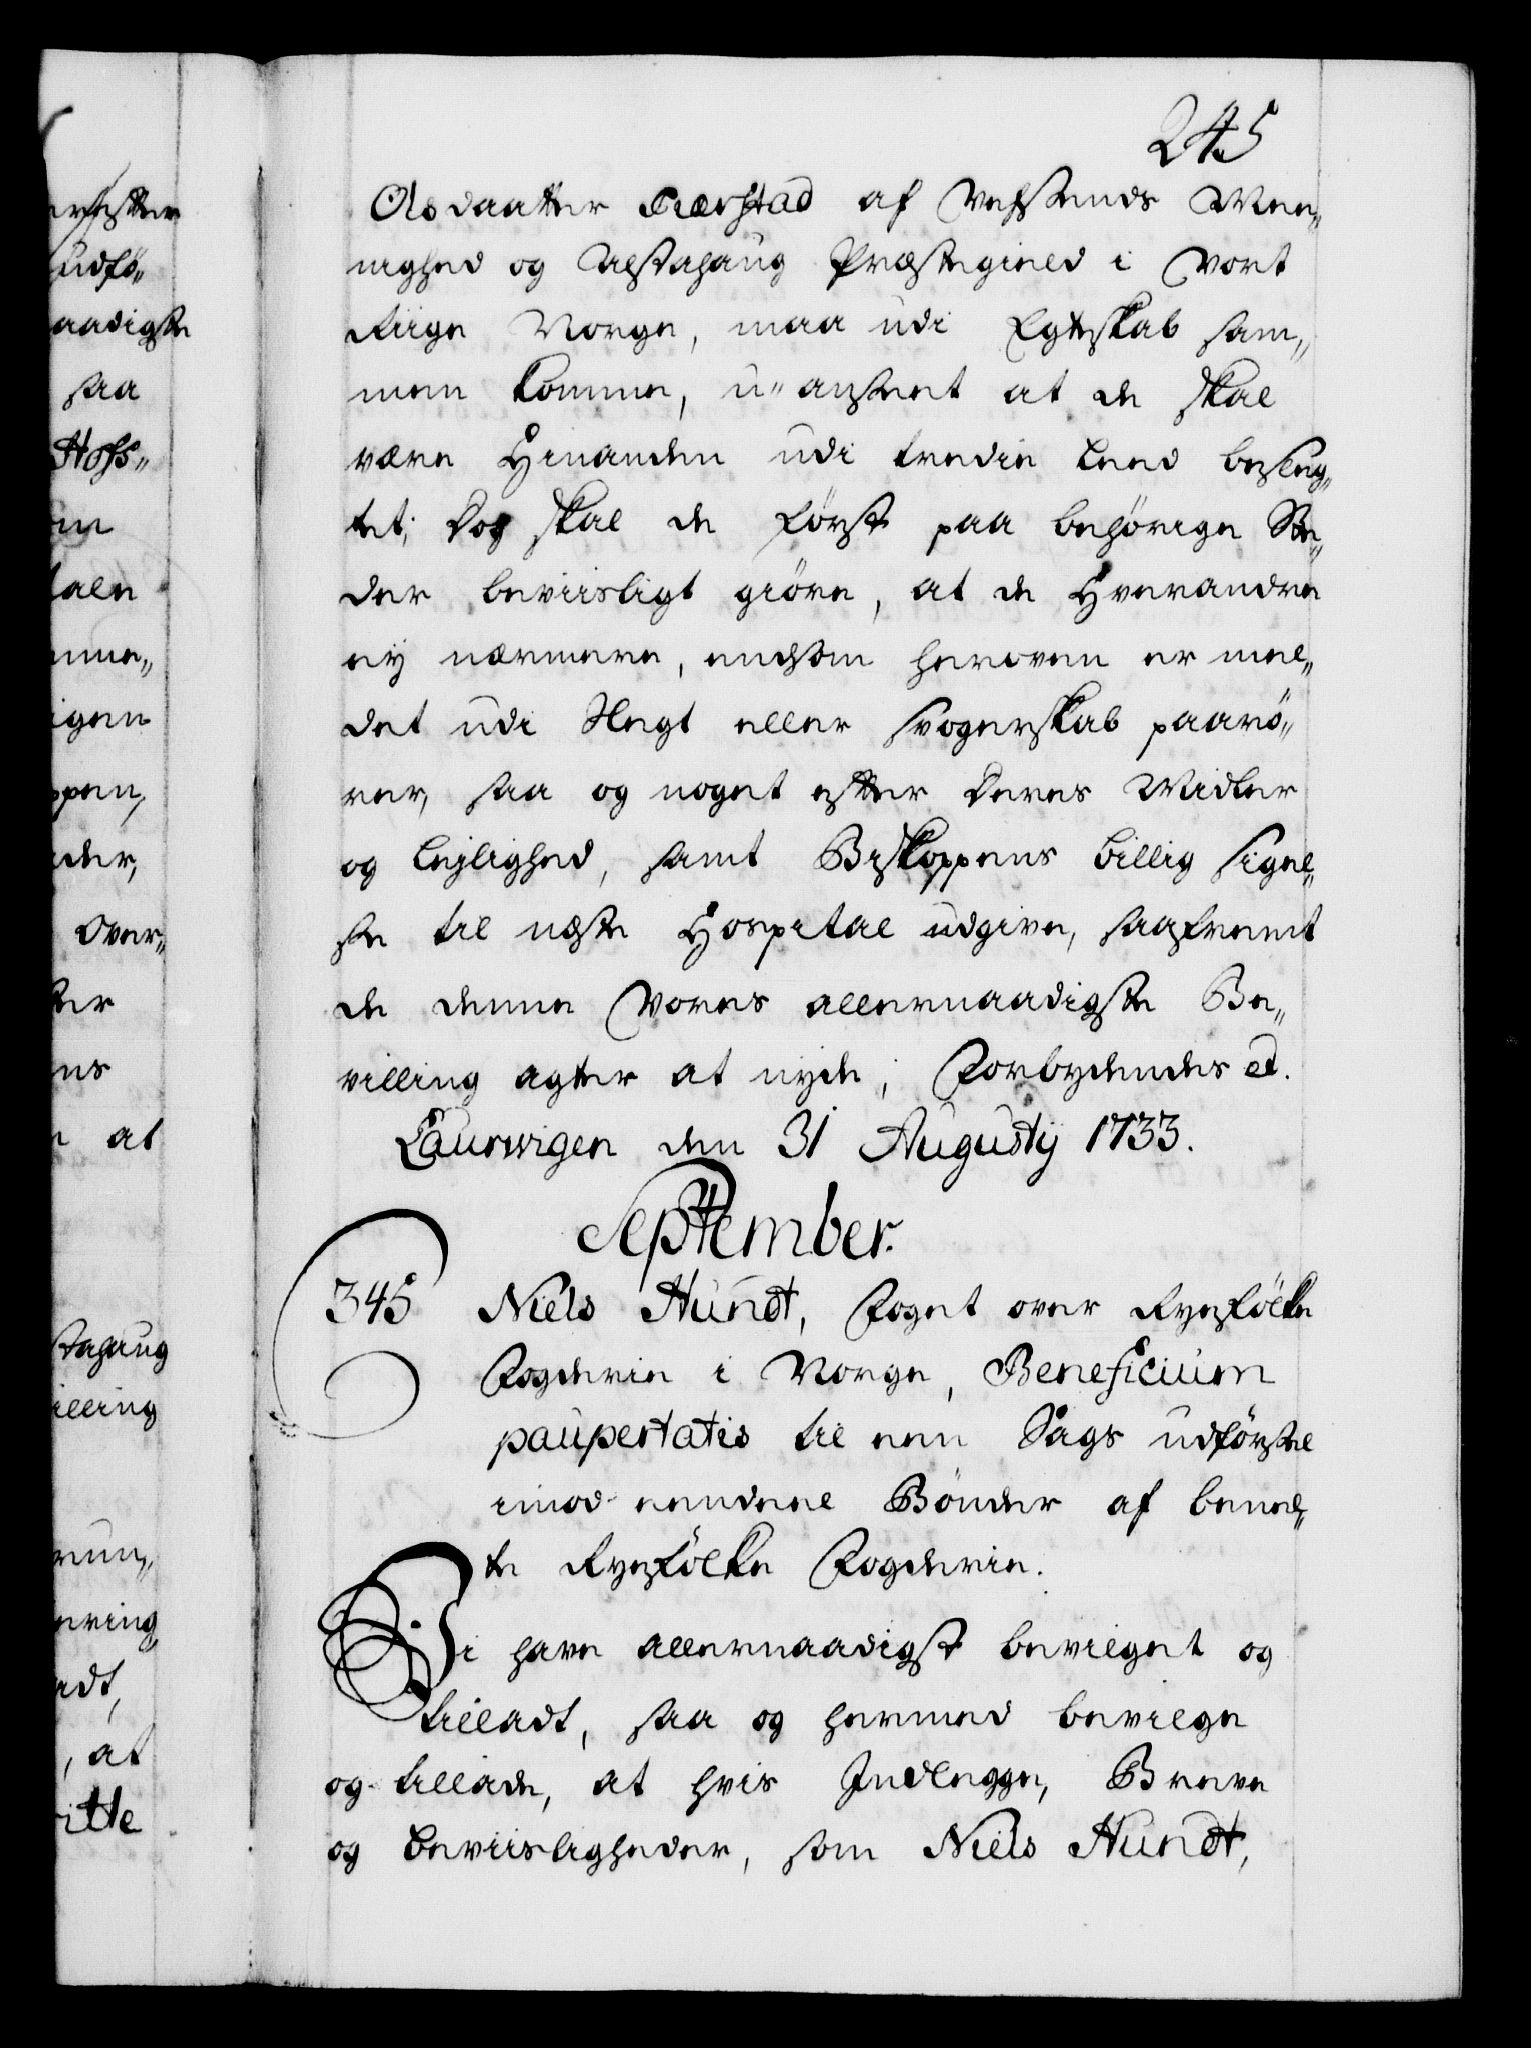 245
Olsdaatter Kierstad af Vefsends Mee„
nighed og Alstahaug Præstegield i Vort
Riige Norge, maa udi Egteskab sam„
men komme, u„anseet at de skal
være Hinanden udi tredie Leed beslæg„
tet; Dog skal de først paa behørige Ste„
der beviisligt giøre, at de Hverandre
eij nærmere, endsom heroven er mel„
det udi Slegt eller Svogerskab paarø„
rer, saa og noget efter Deres Midler
og Lejlighed, samt Biskoppens billig sigel„
se til næste Hospital udgive, saafremt
de denne Vores allernaadigste Be„
villing agter at nyde; Forbydendes etc.
Laurwigen den 31 Augustij 1733.
September.
345 Niels Hundt, Foget over Ryefölke
Fogderie i Norge, Beneficium
paupertatis til een Sags udførsel
imod eendeel Bönder af bemel„
te Ryefölke Fogderie.
Vi have allernaadigst bevilget og
tilladt, saa og hermed bevilge
og tillade, at hvis Indlegge, Breve
og beviisligheder, som Niels Hundt,
udfö„
aadigste
saa
Hoss„
Over„
at
stahaug
illing